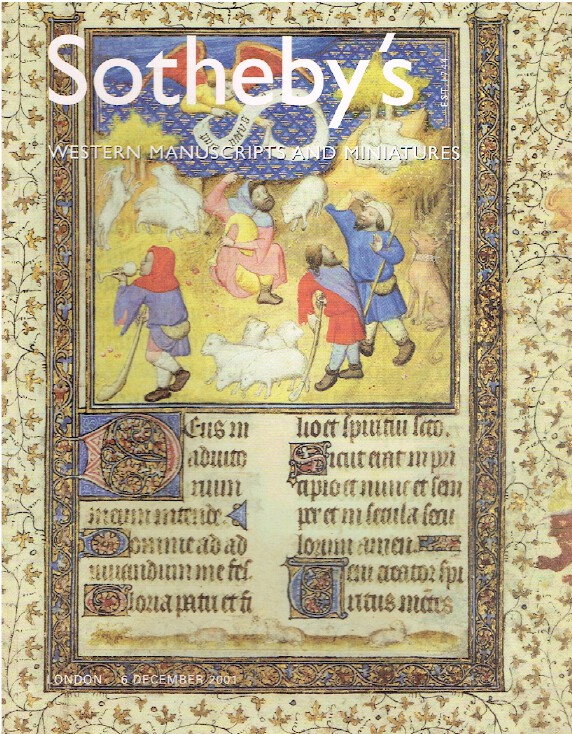 Sotheby's
EST. 1744
WESTERN MANUSCRIPTS AND MINIATURES
Deus in
adiuto
rium
meum intende.
Domine ad ad
iuuandum me fes
Gloria patri et fi
lio et spiritui scto.
Sicut erat in pri
cipio et nunc et sem
per et in secula secu
lorum amen.
Ueni creator spi
ritus mētes
LONDON 6 DECEMBER 2001